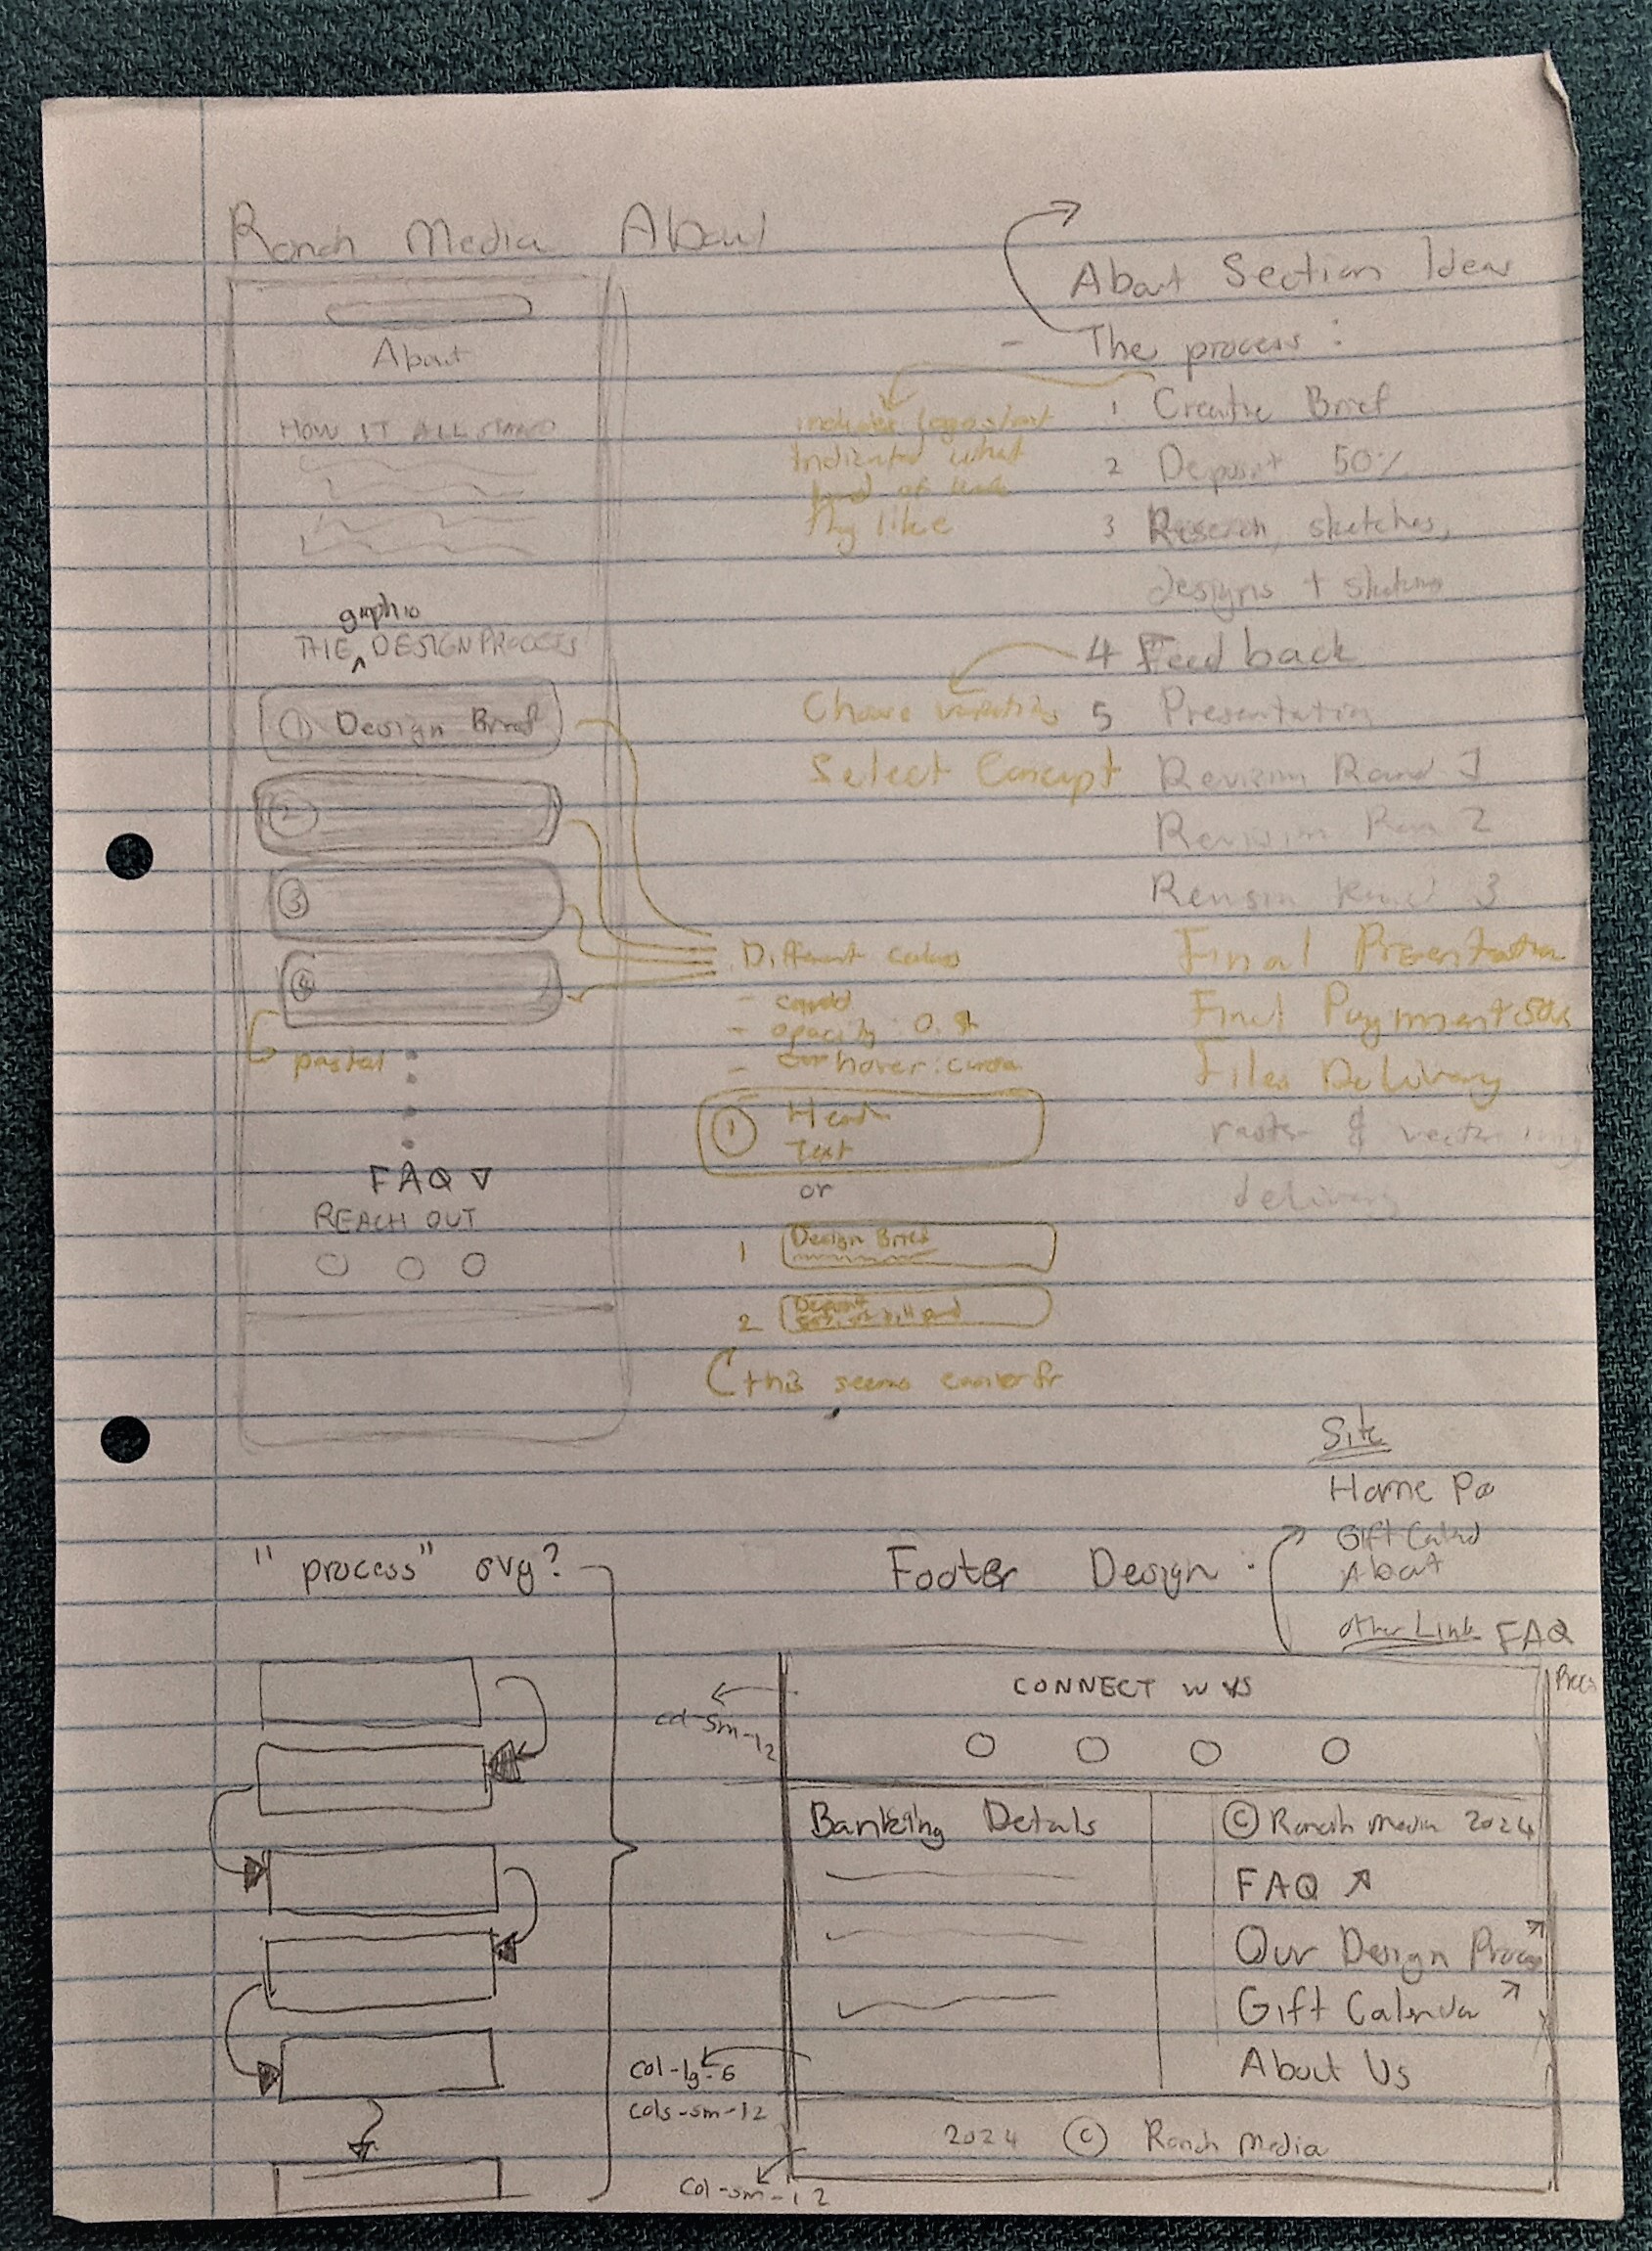 Ranch Media About
About
HOW IT ALL STARTED
graphic
THE ^ DESIGN PROCESS
① Design Brief
②
③
④
pastel
FAQ ▽
REACH OUT
About Section Ideas
- The process :
1 Creative Brief
2 Deposit 50%
3 Research, sketches,
designs + sketches
4 Feedback
5 Presentation
Revision Round 1
Revision 2
Revision Round 3
Final Presentation
Final Payment 50%
Files Delivery
raster & vector
delivery
Indicated what
kind of
they like
Choose
Select Concept
Different colors
-
- opacity : 0.
- hover :
① Head
Text
or
1 Design Brief
2 Deposit
this seems easier
"process" svg?
Footer Design :
Site
Home
Gift
About
Other Link FAQ
CONNECT W US
col-sm-12
Banking Details
© Ranch Media 2024
FAQ ↗
Our Design Process ↗
Gift Calendar ↗
About Us
col-lg-6
cols-sm-12
2024 © Ranch Media
col-sm-12